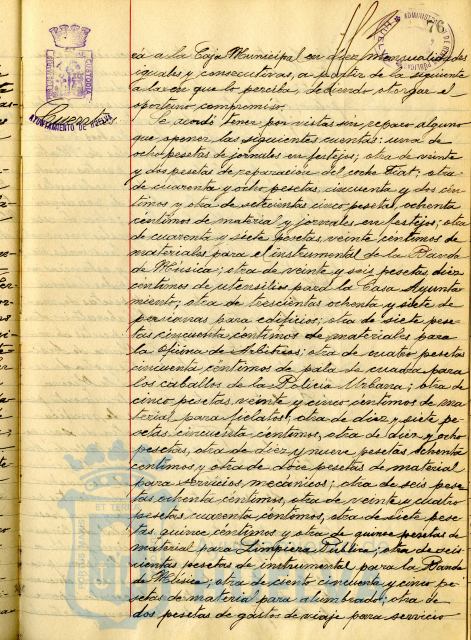 76
AYUNTAMIENTO DE HUELVA
Cuentas
rá a la Caja Municipal en diez mensualidades
iguales y consecutivas, a partir de la siguiente
a la en que lo perciba, debiendo otorgar el
oportuno compromiso.
Se acordó tener por vistas sin reparo alguno
que oponer las siguientes cuentas: una de
ocho pesetas de jornales en festejos; otra de veinte
y dos pesetas de reparación del coche Fiat; otra
de cuarenta y ocho pesetas, cincuenta y dos cén-
timos y otra de setecientas cinco pesetas, ochenta
céntimos de material y jornales en festejos; otra
de cuarenta y siete pesetas, veinte céntimos de
materiales para el instrumental de la Banda
de Música; otra de veinte y seis pesetas, diez
céntimos de utensilios para la Casa Ayunta
miento; otra de trescientas ochenta y siete de
persianas para edificios; otra de siete pese-
tas cincuenta céntimos de materiales para
la oficina de Arbitrios; otra de cuatro pesetas
cincuenta céntimos de pala de cuadra para
los caballos de la Policía Urbana; otra de
cinco pesetas, veinte y cinco céntimos de ma-
terial para felatos; otra de diez y siete pe-
setas cincuenta céntimos, otra de diez y ocho
pesetas, otra de diez y nueve pesetas, ochenta
céntimos y otra de doce pesetas de material
para servicios mecánicos; otra de seis pese-
tas, ochenta céntimos, otra de veinte y cuatro
pesetas, cuarenta céntimos, otra de siete pese-
tas, quince céntimos y otra de quince pesetas de
material para Limpieza Pública; otra de seis
cientas pesetas de instrumental para la Banda
de Música; otra de ciento cincuenta y cinco pe-
setas de material para alumbrado; otra de
dos pesetas de gastos de viaje para servicio